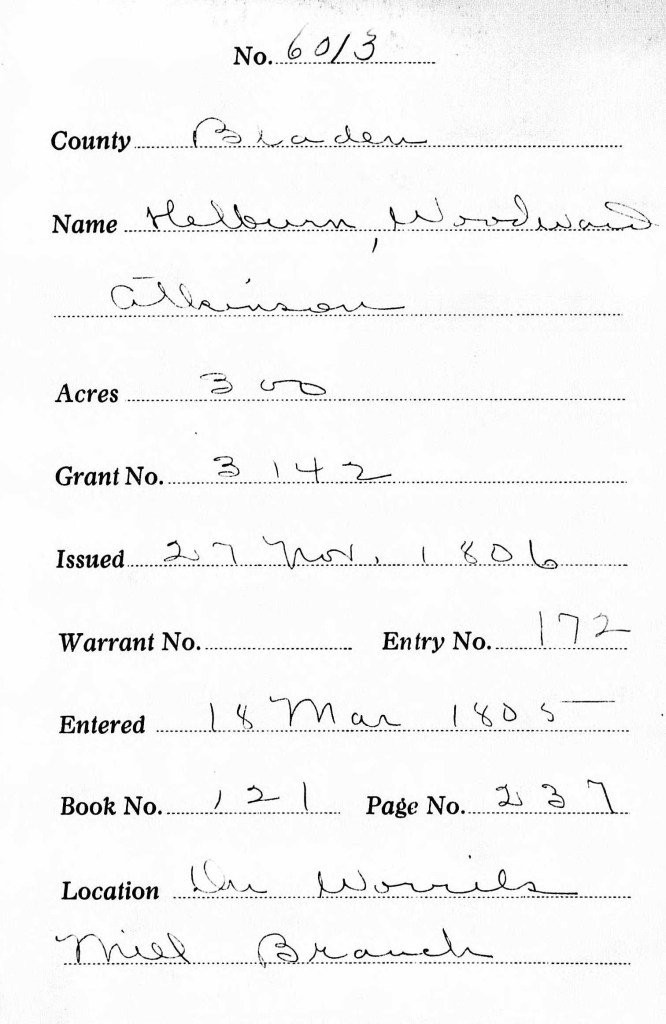 No. 6013
County Bladen
Name Helburn, Woodward
Atkinson
Acres 300
Grant No. 3142
Issued 27 Nov. 1806
Warrant No. Entry No. 172
Entered 18 Mar 1805
Book No. 121 Page No. 237
Location On Worrils
Mill Branch